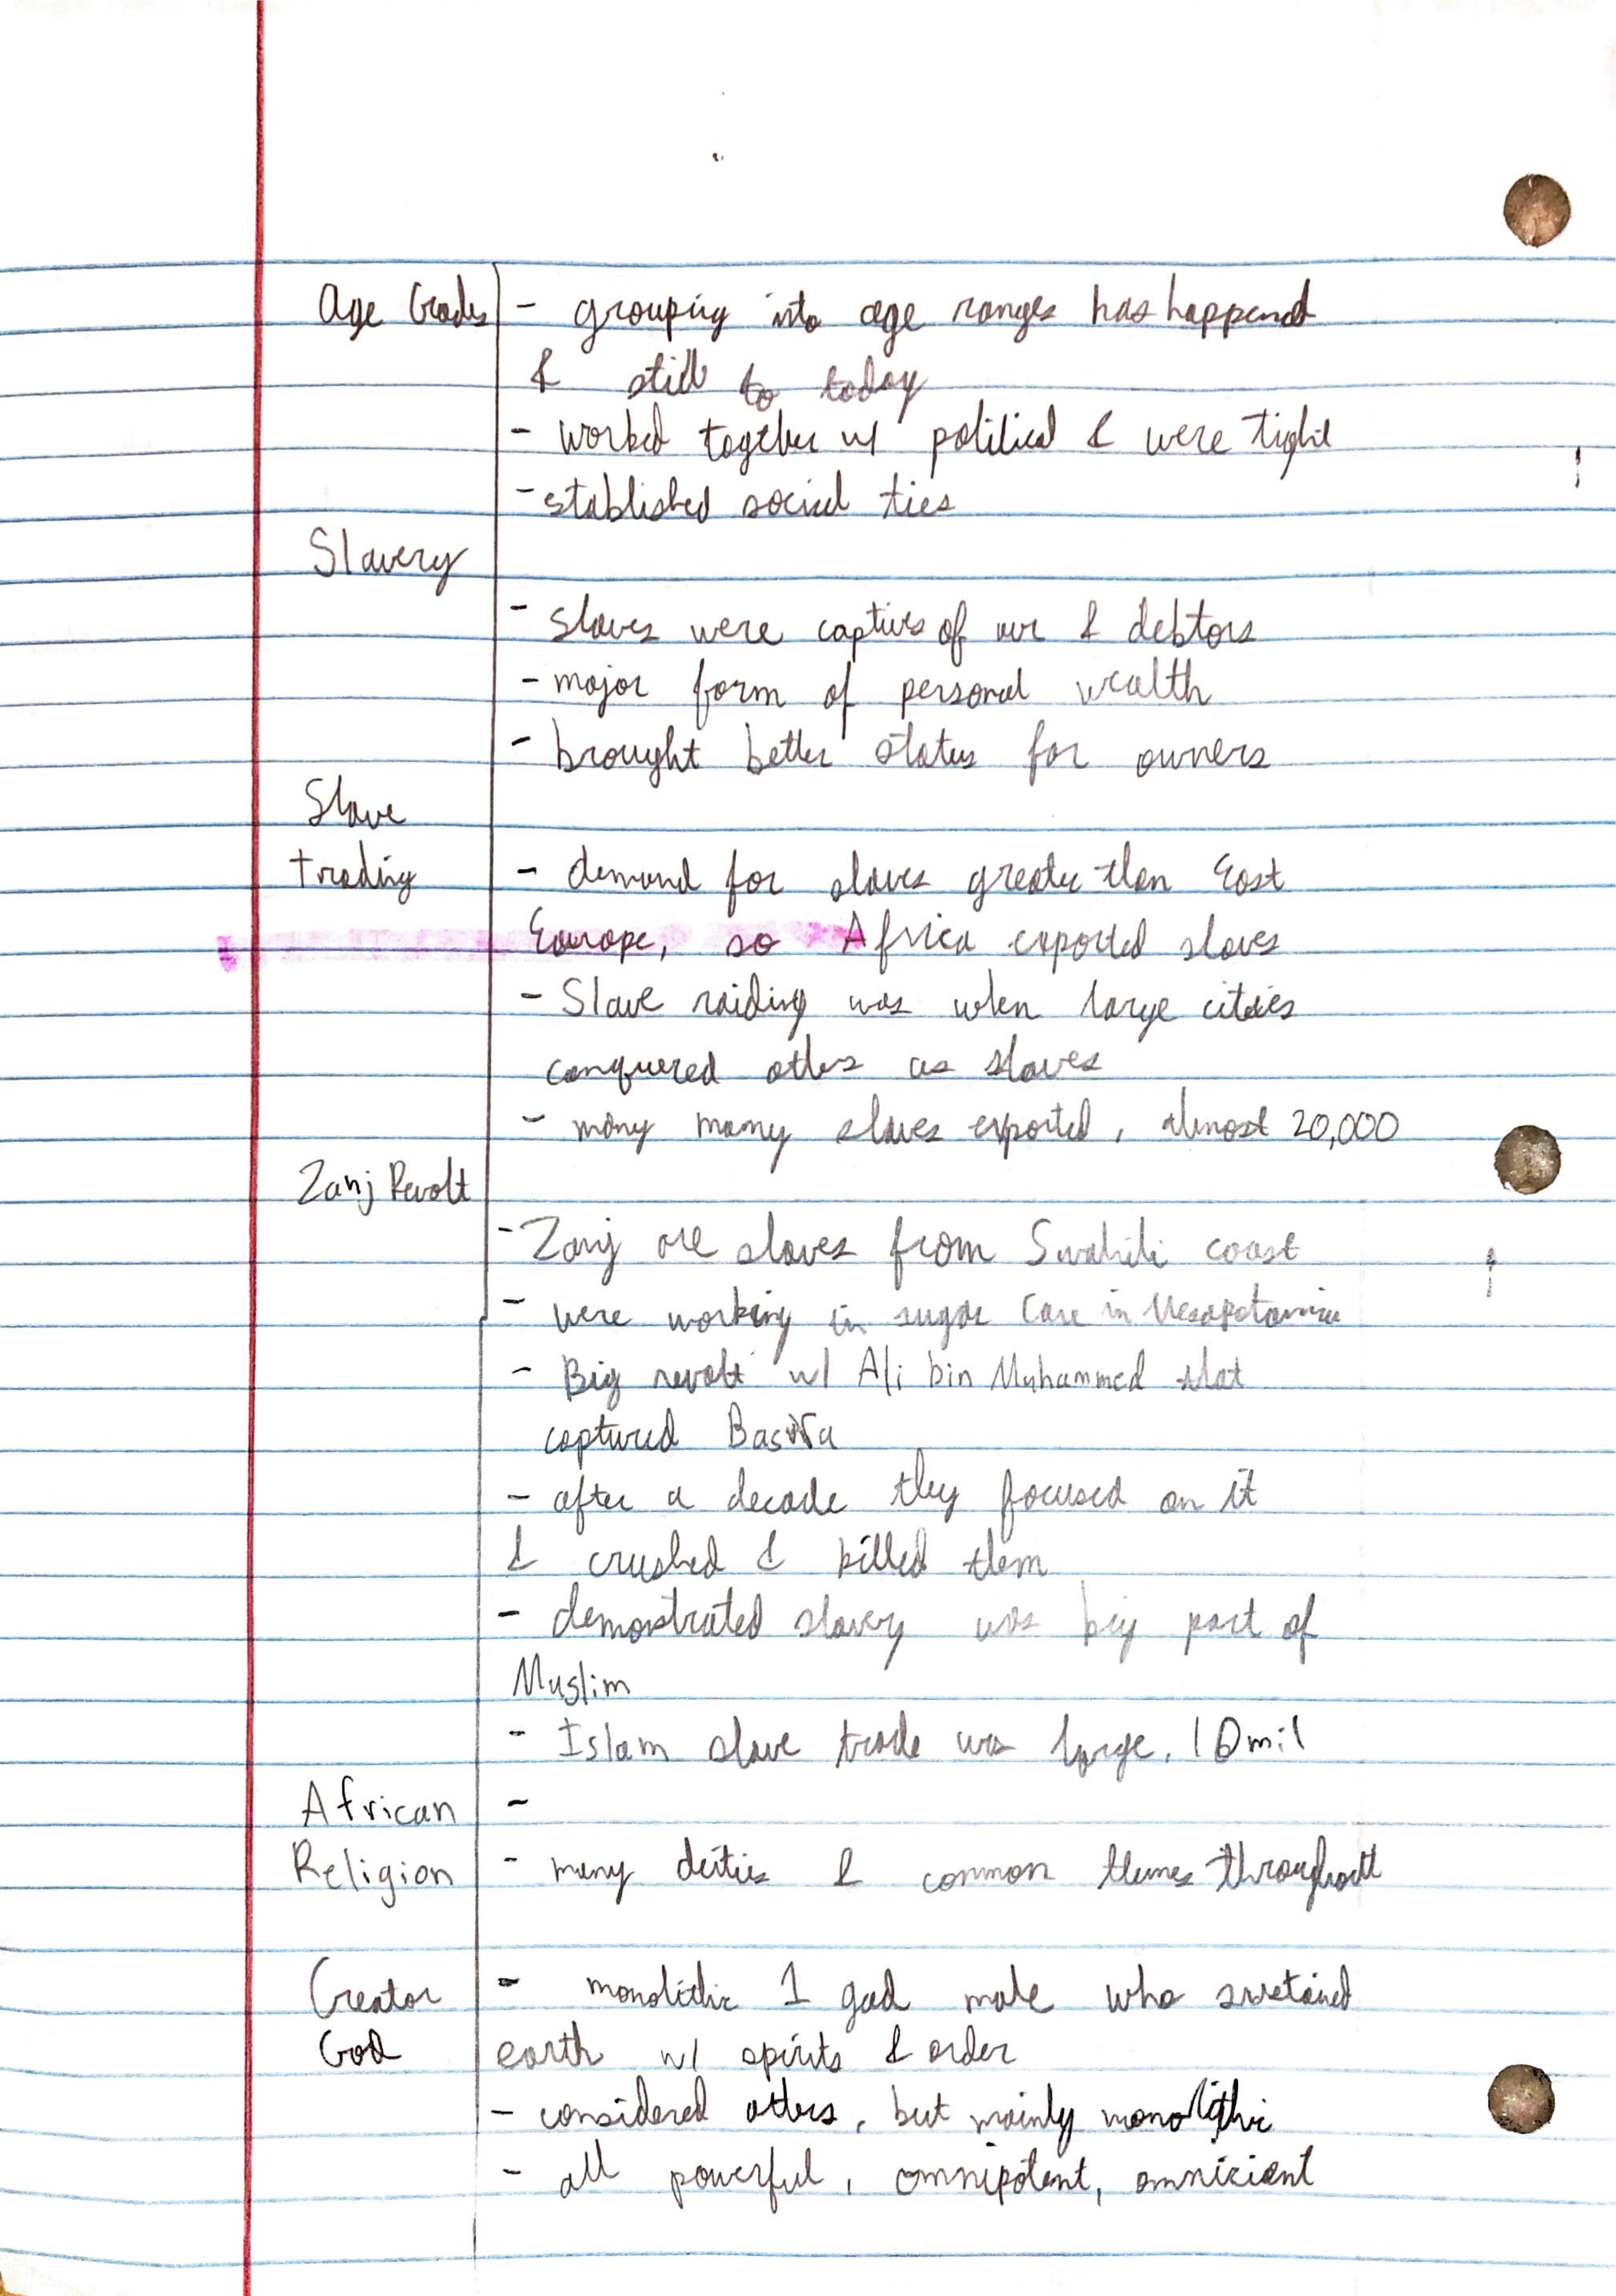 Age Grades - grouping into age ranges has happend
& still to today
- worked together w/ political & were tight
- established social ties
Slavery
- slaves were captives of war & debtors
- major form of personal wealth
- brought better status for owners
Slave
trading - demand for slaves greater than East
Europe, so Africa exported slaves
- Slave raiding was when large cities
conquered others as slaves
- many many slaves exported, almost 20,000
Zanj Revolt
- Zanj are slaves from Swahili coast
- were working in sugar cane in Mesopotamia
- Big revolt w/ Ali bin Muhammed that
captured Basra
- after a decade they focused on it
& crushed & killed them
- demonstrated slavery was big part of
Muslim
- Islam slave trade was large, 10mil
African -
Religion - many deities & common themes throughout
Creator - monolithic 1 god male who sustained
God earth w/ spirits & order
- considered others, but mainly monolithic
- all powerful, omnipotent, omnicient